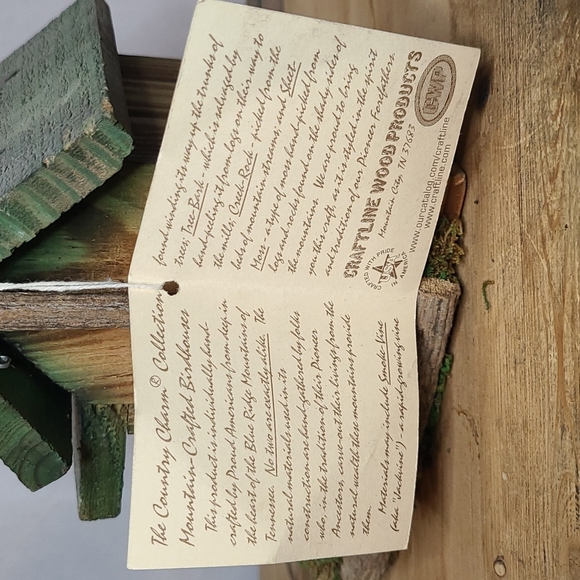 The Country Charm® Collection
Mountain-Crafted Birdhouses
This product is individually hand-
crafted by Proud Americans from deep in
the heart of the Blue Ridge Mountains of
Tennessee. No two are exactly alike. The
natural materials used in its
construction are hand-gathered by folks
who, in the tradition of their Pioneer
Ancestors, carve-out their livings from the
natural wealth these mountains provide
them.
Materials may include Smoke-Vine
(aka 'Vachvine') - a rapid growing vine
found winding its way up the trunks of
trees; Tree-Bark - which is salvaged by
hand-peeling it from logs on their way to
the mills; Creek-Rock - picked from the
beds of mountain streams; and Sheet
Moss - a type of moss hand-picked from
logs and rocks found on the shady sides of
the mountains. We are proud to bring
you this craft, as it is styled in the spirit
and tradition of our Pioneer Forefathers.
CRAFTLINE WOOD PRODUCTS
Mountain City, TN 37683
CRAFTED WITH PRIDE
IN
USA
CWP
www.ourcatalog.com/craftline
www.craftline.com